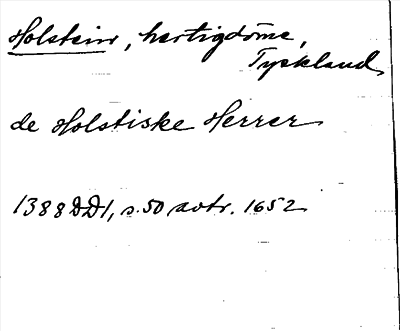 Holstein, hertigdöme,
Tyskland
de Holstiske Herrer
1388 DD1, s. 50 avtr. 1652